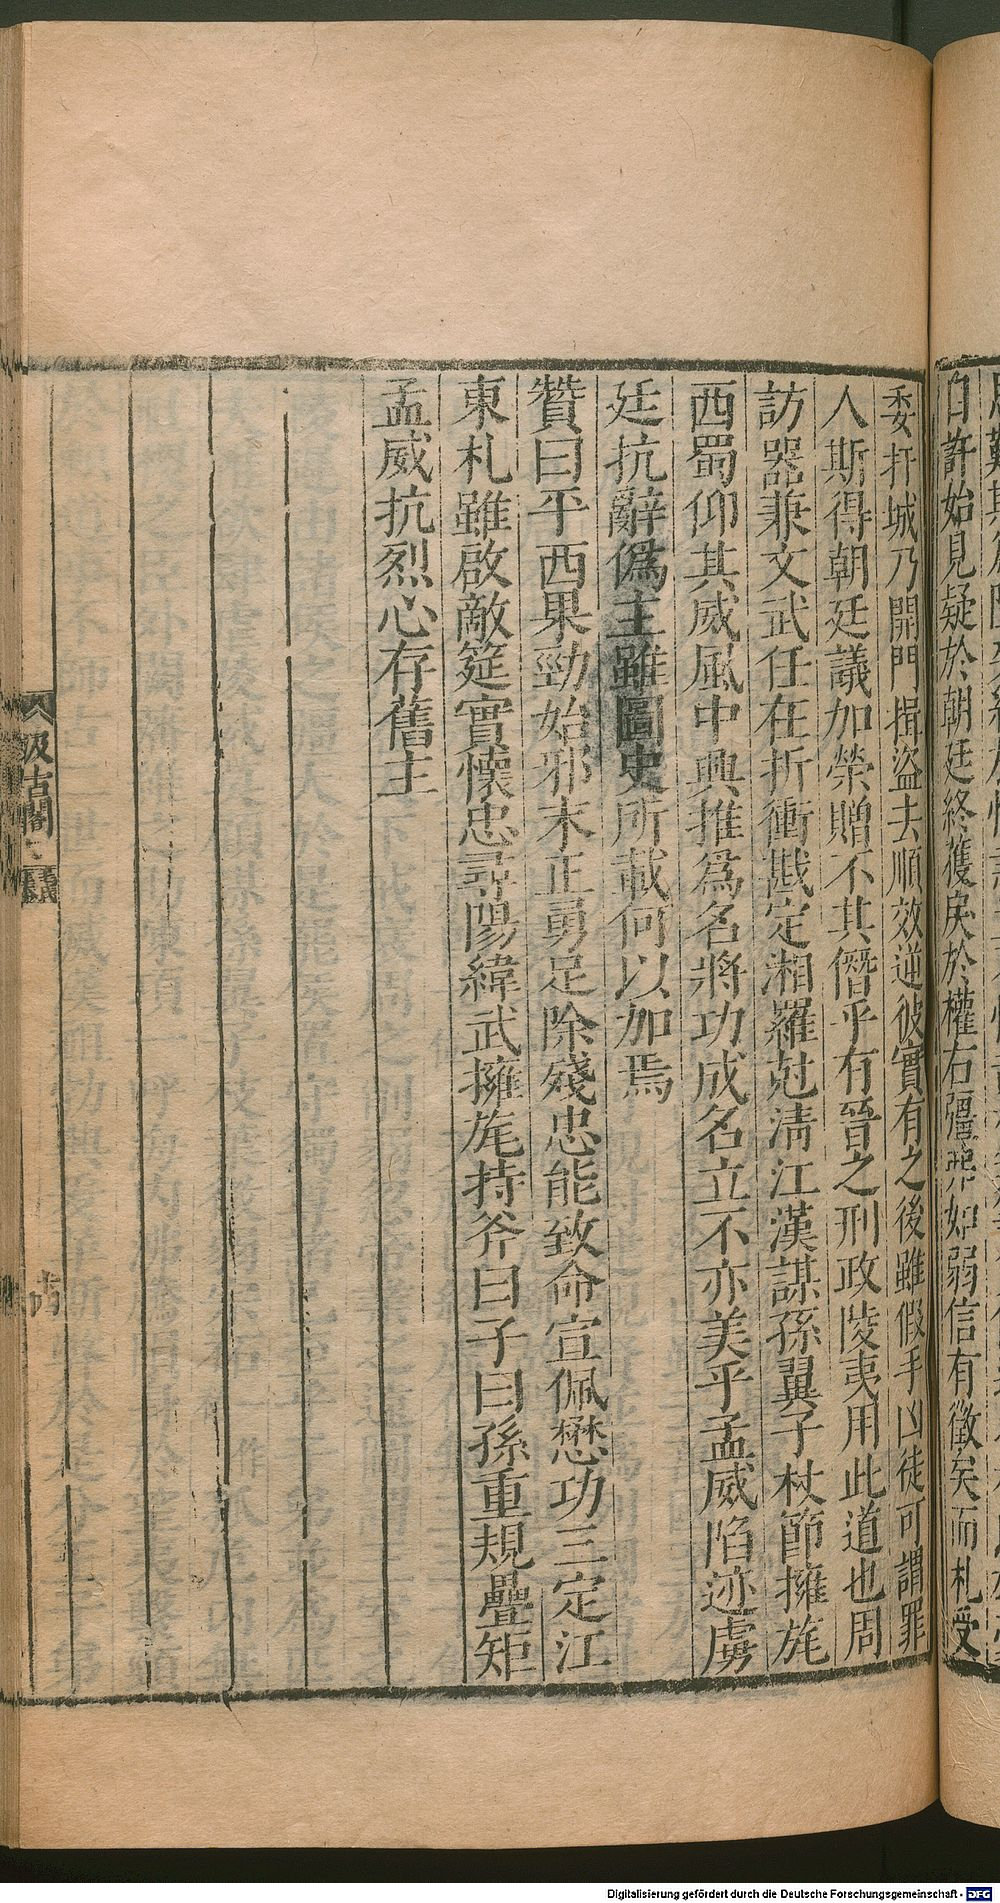 自許始見疑於朝廷終獲戾於權右彊弱信有徵矣而札受
委扞城乃開門揖盜去順效逆彼實有之後雖假手凶徒可謂罪
人斯得朝廷議加榮贈不其僭乎有晉之刑政陵夷用此道也周
訪器兼文武任在折衝戡定湘羅尅淸江漢謀孫翼子杖節擁旄
西蜀仰其威風中興推爲名將功成名立不亦美乎孟威陷迹虜
廷抗辭僞主雖圖史所載何以加焉
贊曰平西果勁始邪末正勇足除殘忠能致命宣佩懋功三定江
東札雖啟敵筵實懷忠尋陽緯武擁旄持斧曰子曰孫重規疊矩
孟威抗烈心存舊主
汲古閣
毛氏
Digitalisierung gefördert durch die Deutsche Forschungsgemeinschaft - DFG